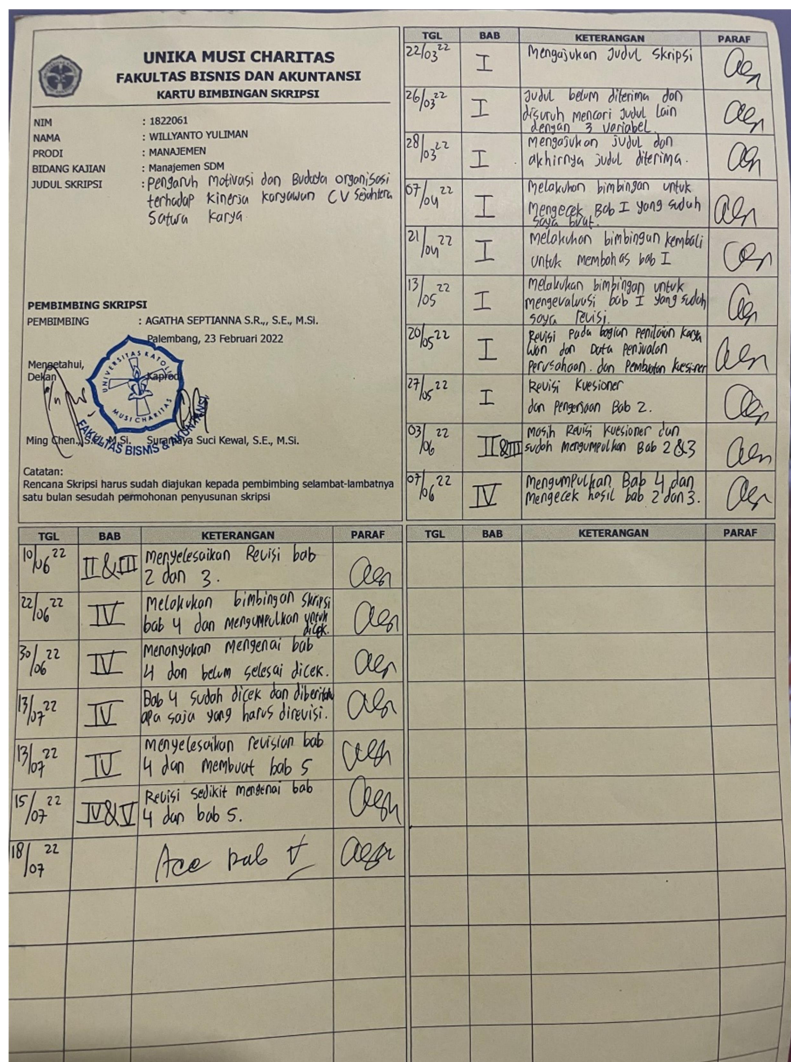 UNIKA MUSI CHARITAS
FAKULTAS BISNIS DAN AKUNTANSI
KARTU BIMBINGAN SKRIPSI
NIM : 1822061
NAMA : WILLYANTO YULIMAN
PRODI : MANAJEMEN
BIDANG KAJIAN : Manajemen SDM
JUDUL SKRIPSI : Pengaruh Motivasi dan Budaya organisasi
terhadap Kinerja Karyawan CV Sejahtera
Satwa Karya
PEMBIMBING SKRIPSI
PEMBIMBING : AGATHA SEPTIANNA S.R., S.E., M.Si.
Palembang, 23 Februari 2022
Mengetahui,
Dekan Kaprodi
UNIVERSITAS KATOLIK
MUSI CHARITAS
FAKULTAS BISNIS & AKUNTANSI
Ming Chen., S.E., M.Si. Suramaya Suci Kewal, S.E., M.Si.
Catatan:
Rencana Skripsi harus sudah diajukan kepada pembimbing selambat-lambatnya
satu bulan sesudah permohonan penyusunan skripsi
TGL BAB KETERANGAN PARAF
22/03 22 I Mengajukan Judul Skripsi
26/03 22 I Judul belum diterima dan
disuruh mencari judul lain
dengan 3 variabel.
28/03 22 I Mengajukan judul dan
akhirnya judul diterima.
07/04 22 I Melakukan bimbingan untuk
Mengecek Bab I yang sudah
saya buat.
21/04 22 I Melakukan bimbingan kembali
untuk membahas bab I
13/05 22 I Melakukan bimbingan untuk
mengevaluasi bab I yang sudah
saya revisi.
20/05 22 I Revisi pada bagian penilaian karya
wan dan Data penjualan
perusahaan. dan Pembuatan kuesioner
27/05 22 I Revisi Kuesioner
dan Pengerjaan Bab 2.
03/06 22 II&III Masih Revisi Kuesioner dan
sudah Mengumpulkan Bab 2&3
07/06 22 IV Mengumpulkan Bab 4 dan
Mengecek hasil bab 2 dan 3.
TGL BAB KETERANGAN PARAF
10/06 22 II&III Menyelesaikan Revisi bab
2 dan 3.
22/06 22 IV Melakukan bimbingan skripsi
bab 4 dan mengumpulkan untuk
dicek.
30/06 22 IV Menanyakan Mengenai bab
4 dan belum selesai dicek.
13/07 22 IV Bab 4 sudah dicek dan diberitahu
apa saja yang harus direvisi.
13/07 22 IV Menyelesaikan revisian bab
4 dan membuat bab 5
15/07 22 IV&V Revisi sedikit mengenai bab
4 dan bab 5.
18/07 22 Acc bab V
TGL BAB KETERANGAN PARAF